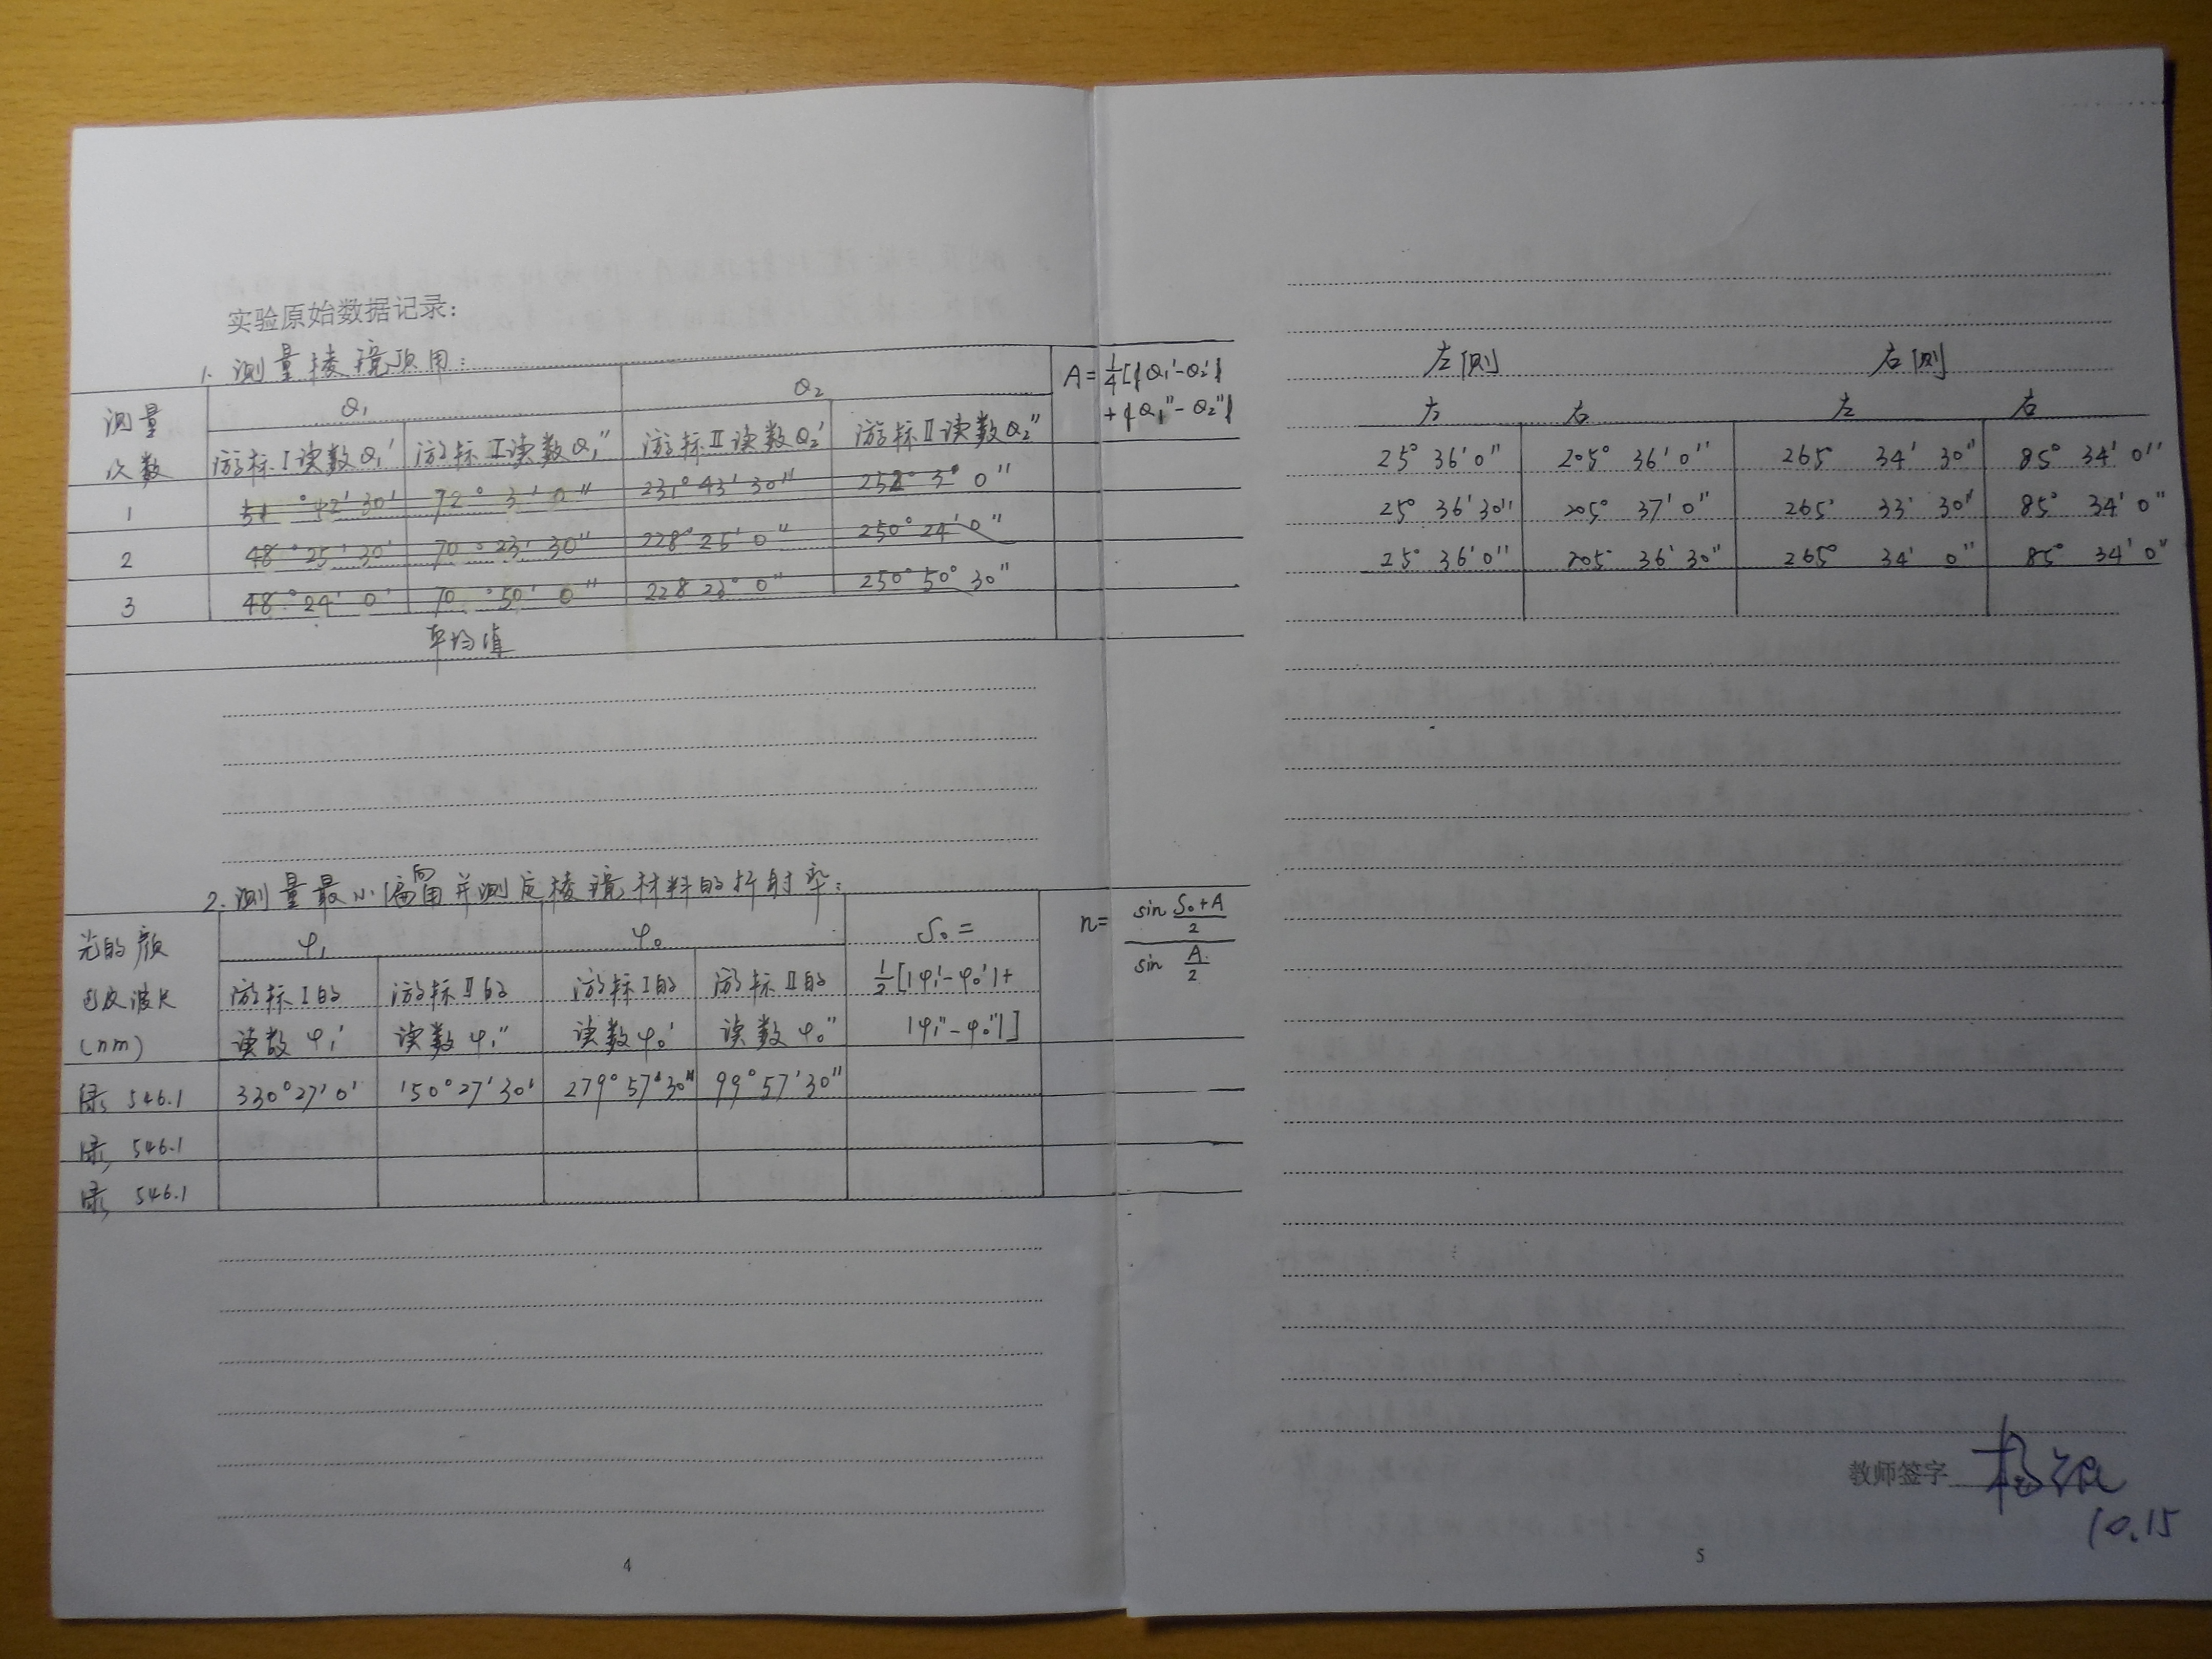 实验原始数据记录：
1. 测量棱镜顶角：
测量次数 θ₁ θ₂ A=¼[|θ₁'-θ₂'|+|θ₁"-θ₂"|]
游标I读数θ₁' 游标I读数θ₁" 游标II读数θ₂' 游标II读数θ₂"
1 51°42'30' 72°3'0" 231°43'30" 252°3°0"
2 48°25'30' 70°23'30" 228°25'0" 250°24'0"
3 48°24'0' 70°50'0" 228 23°0" 250°50°30"
平均值
2. 测量最小偏向角并测定棱镜材料的折射率：
光的颜色及波长(nm) φ₁ φ₀ δ₀= n= sin (δ₀+A)/2 / sin A/2
游标I的读数φ₁' 游标II的读数φ₁" 游标I的读数φ₀' 游标II的读数φ₀" ½[|φ₁'-φ₀'|+|φ₁"-φ₀"|]
绿, 546.1 330°27'0' 150°27'30' 279°57'30" 99°57'30"
绿, 546.1
绿, 546.1
4
左侧 右侧
左 右 左 右
25°36'0" 205°36'0" 265° 34' 30" 85° 34' 0"
25° 36'30" 205° 37'0" 265° 33' 30" 85° 34'0"
25° 36'0" 205° 36'30" 265° 34' 0" 85° 34'0"
教师签字
10.15
5